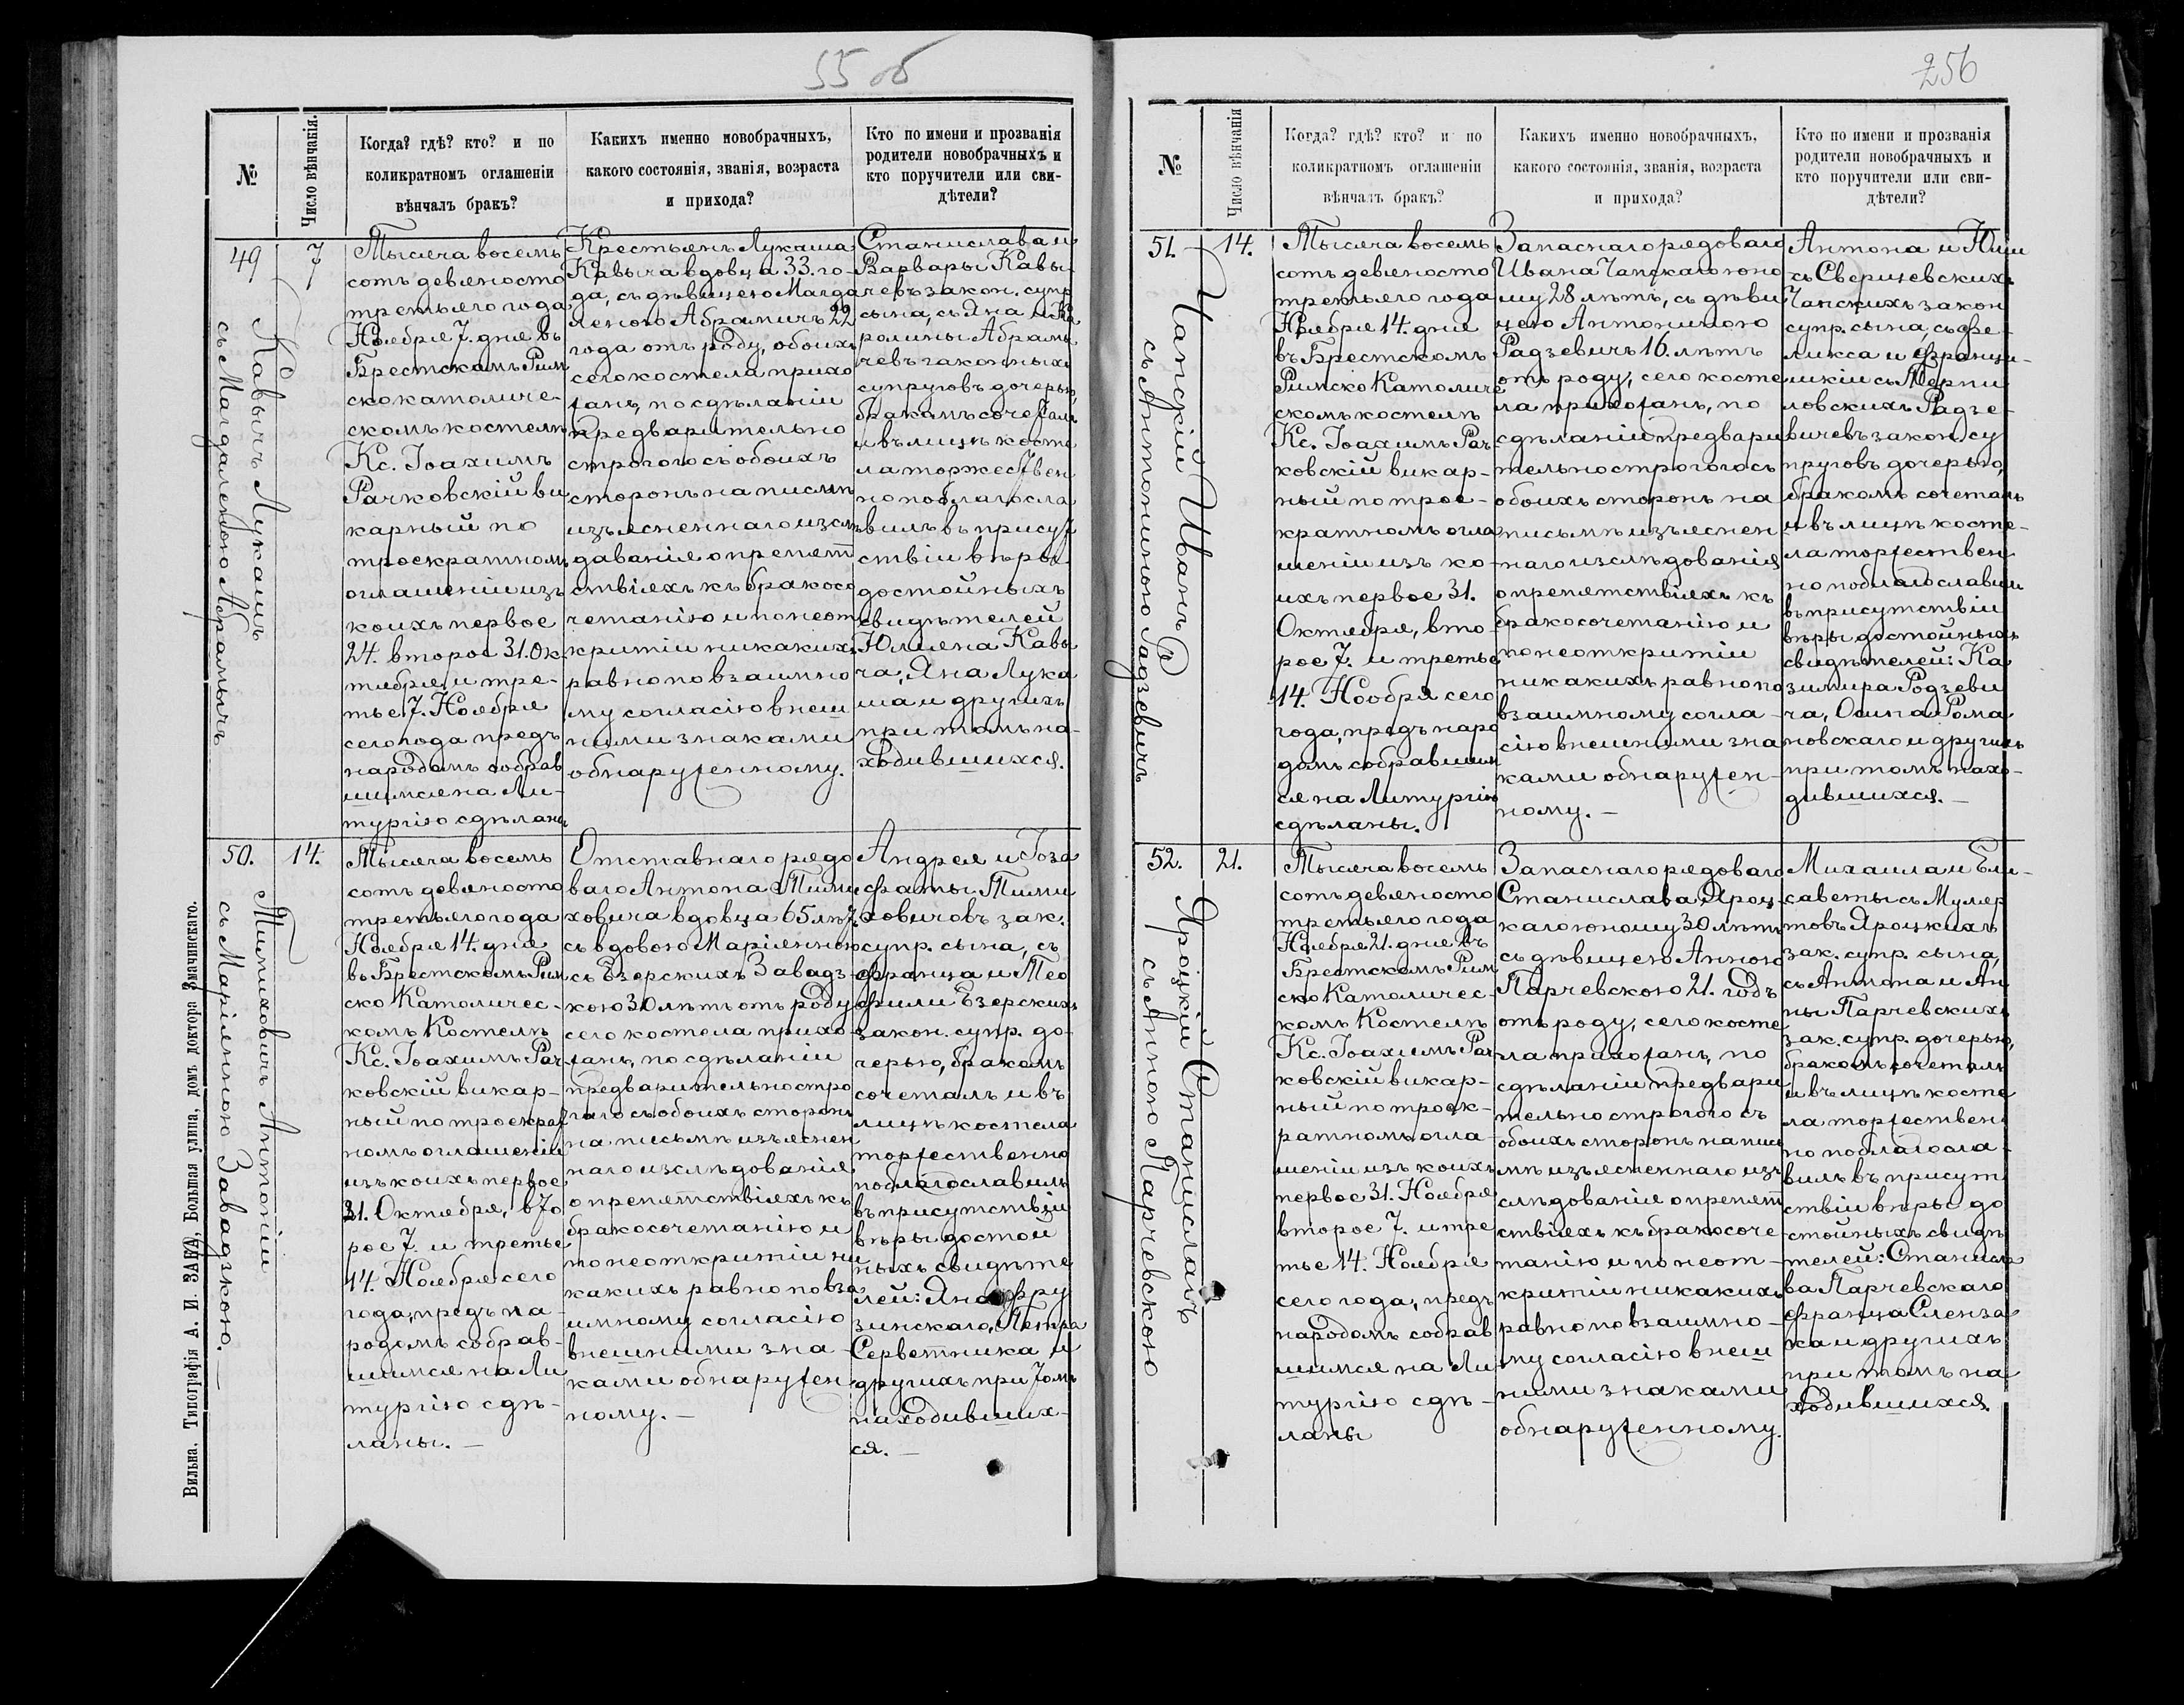 55 об
№
Число вѣнчанія.
Когда? гдѣ? кто? и по
коликратномъ оглашеніи
вѣнчалъ бракъ?
Какихъ именно новобрачныхъ,
какого состоянія, званія, возраста
и прихода?
Кто по имени и прозванія
родители новобрачныхъ и
кто поручители или сви-
дѣтели?
49
7
Кавычъ Лукашъ
съ Магдаленою Абрамычъ
Тысяча восемь
сотъ девяносто
третьяго года
Ноября 7. дня въ
Брестскомъ Рим
ско католиче-
скомъ костелѣ
Кс. Іоахимъ
Рачковскій ви
карный по
троекратномъ
оглашеніи изъ
коихъ первое
24. второе 31. Ок-
тября, и тре-
тье 7. Ноября
сего года предъ
народомъ собрав
шимся на Ли-
тургію сдѣланы
Крестьянъ Лукаша
Кавыча вдовца 33. го-
да, съ дѣвицею Магда
леною Абрамичъ 22
года отъ роду, обоихъ
сего костела прихо
жанъ, по сдѣланіи
предварительно
строгого съ обоихъ
сторонъ на письмѣ
изъясненнаго изслѣ
дованія о препят
ствіяхъ къ бракосо
четанію и по неот
критіи никакихъ
равно по взаимно
му согласію внеш
ними знаками
обнаруженному.
Станислава и
Варвары Кавы-
чевъ закон. супр
сына, съ Яна и Ка
ролины Абрамы
чевъ законныхъ
супруговъ дочерью,
бракомъ сочеталъ
и въ лицѣ косте
ла торжествен
но поблагосла
вилъ въ присут
ствіи вѣры
достойныхъ
свидѣтелей
Юлияна Кавы
ча, Яна Лука
ша и другихъ
при томъ на-
ходившихся.
50.
14.
Тимиховичъ Антоній
съ Маріянною Завадзкою.
Тысяча восемь
сотъ девяносто
третьяго года
Ноября 14. дня
въ Брестскомъ Рим
ско Католичес-
комъ Костелѣ
Кс. Іоахимъ Рач
ковскій викар-
ный по троекрат
номъ оглашеніи
изъ коихъ первое
31. Октября, вто
рое 7. и третье
14. Ноября сего
года, предъ на-
родомъ собрав-
шимся на Ли
тургію сдѣ-
ланы. —
Отставнаго рядо
ваго Антона Тими
ховича вдовца 65 лѣт
съ вдовою Маріянною
съ Езерскихъ Завадз-
кою 30 лѣтъ отъ роду
сего костела прихо-
жанъ, по сдѣланіи
предварительно стро
гаго съ обоихъ сторонъ
на письмѣ изъяснен
наго изслѣдованія
о препятствіяхъ къ
бракосочетанію и
по неоткритіи ни
какихъ равно по вза
имному согласію
внешними зна-
ками обнаружен
ному. —
Андрея и Гоза
фаты Тими
ховичовъ зак.
супр. сына, съ
Франца и Тео
фили Езерскихъ
закон. супр. до-
черью, бракомъ
сочеталъ и въ
лицѣ костела
торжественно
поблагославилъ
въ присутствіи
вѣры достой
ныхъ свидѣте
лей: Яна Фру
зинскаго, Петра
Серветника и
другихъ при томъ
находивших-
ся. —
Вильна. Типографія А. И. ЗАКА, Большая улица, домъ доктора Змачинскаго.
256
№
Число вѣнчанія
Когда? гдѣ? кто? и по
коликратномъ оглашеніи
вѣнчалъ бракъ?
Какихъ именно новобрачныхъ,
какого состоянія, званія, возраста
и прихода?
Кто по имени и прозванія
родители новобрачныхъ и
кто поручители или сви-
дѣтели?
51.
14.
Чапскій Иванъ
съ Антониною Радзевичъ
Тысяча восемь
сотъ девяносто
третьяго года
Ноября 14. дня
въ Брестскомъ
Римско Католиче
скомъ костелѣ
Кс. Іоахимъ Рач
ковскій викар-
ный по трое-
кратномъ огла
шеніи изъ ко-
ихъ первое 31.
Октября, вто
рое 7. и третье
14. Нообря сего
года, предъ наро
домъ собравшим
ся на Литургію
сдѣланы.
Запаснаго рядоваго
Ивана Чапскаго юно
шу 28 лѣтъ, съ дѣви
цею Антониною
Радзевичъ 16. лѣтъ
отъ роду, сего косте
ла прихожанъ, по
сдѣланіи предвари
тельно строгого съ
обоихъ сторонъ на
письмѣ изъяснен
наго изслѣдованія
о препятствіяхъ къ
бракосочетанію и
по неоткритіи
никакихъ равно по
взаимному согла-
сію внешними зна
ками обнаружен-
ному. —
Антона и Юлии
съ Сверщевскихъ
Чапскихъ закон
супр. сына, съ Фе-
ликса и Франци-
шкіи съ Черни
ловскихъ Радзе-
вичевъ закон. су
пруговъ дочерью,
бракомъ сочеталъ
и въ лицѣ косте-
ла торжествен
но поблагославилъ
въ присутствіи
вѣры достойныхъ
свидѣтелей: Ка
зимира Родзеви
ча, Осипа Рома
новскаго и другихъ
при томъ нахо-
дившихся. —
52.
21.
Яроцкій Станиславъ
съ Анною Парчевскою
Тысяча восемь
сотъ девяносто
третьяго года
Ноября 21. дня въ
Брестскомъ Рим
ско Католичес-
комъ Костелѣ
Кс. Іоахимъ Рач
ковскій викар-
ный по троек-
ратномъ огла-
шеніи изъ коихъ
первое 31. Ноября
второе 7. и тре
тье 14. Ноября
сего года, предъ
народомъ собрав
шимся на Ли
тургію сдѣ-
ланы
Запаснаго рядоваго
Станислава Яроц-
каго юношу 30 лѣтъ
съ дѣвицею Анною
Парчевскою 21. годъ
отъ роду, сего косте
ла прихожанъ, по
сдѣланіи предвари
тельно строгого съ
обоихъ сторонъ на пись
мѣ изъясненнаго из
слѣдованія о препят
ствіяхъ къ бракосоче
танію и по неот-
критіи никакихъ
равно по взаимно-
му согласію внеш
ними знаками
обнаруженному.
Михаила и Ели-
саветы съ Муляр
товъ Яроцкихъ
зак. супр. сына,
съ Антона и Ан
ны Парчевскихъ
зак. супр. дочерью,
бракомъ сочеталъ
и въ лицѣ косте
ла торжествен
но поблагосла-
вилъ въ присут
ствіи вѣры до
стойныхъ свидѣ
телей: Станисла
ва Парчевскаго
Франца Сленза
ка и другихъ
при томъ на
ходившихся.